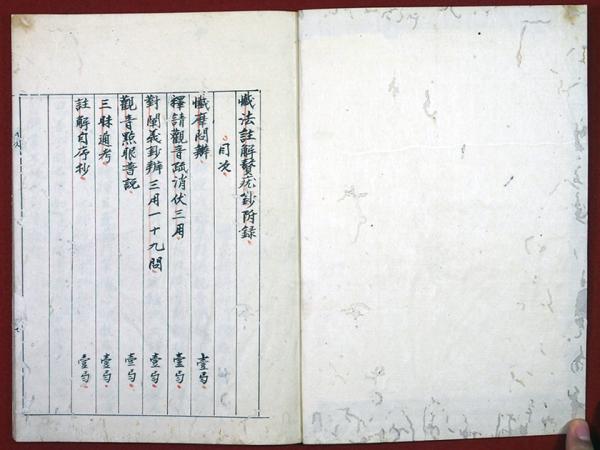 懺法註解鼇巟鈔附録
目次
懺摩問辨 壹
釋請觀音疏消伏三用 壹
對闡義鈔辨三用一十九問 壹
觀音㸃眼普説 壹
三昧通考 壹
註解自序抄 壹